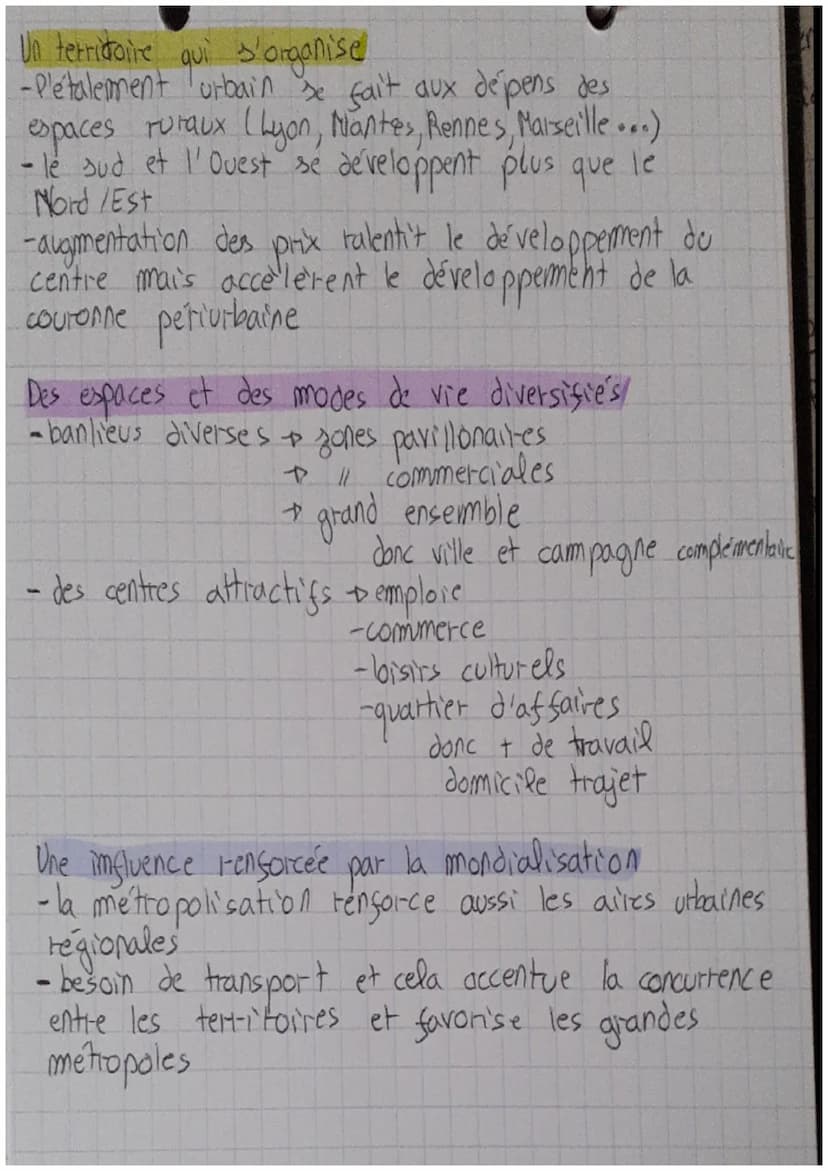 Un territoire qui s'organise
-l'étalement urbain se fait aux dépens des
espaces ruraux (Lyon, Nantes, Rennes, Marseille...)
- le sud et l'Ouest se développent plus que le
Nord /Est
-augmentation des prix ralentit le développement du
centre mais accélèrent le développement de la
couronne périurbaine
Des espaces et des modes de vie diversifiés
-banlieus diverses → zones pavillonaires
→ " commerciales
→ grand ensemble
donc ville et campagne complémentaire
- des centres attractifs → emploie
-commerce
-loisirs culturels
-quartier d'affaires
donc + de travail
domicile trajet
Une influence renforcée par la mondialisation
-la métropolisation renforce aussi les aires urbaines
régionales
- besoin de transport et cela accentue la concurrence
entre les territoires et favorise les grandes
métropoles